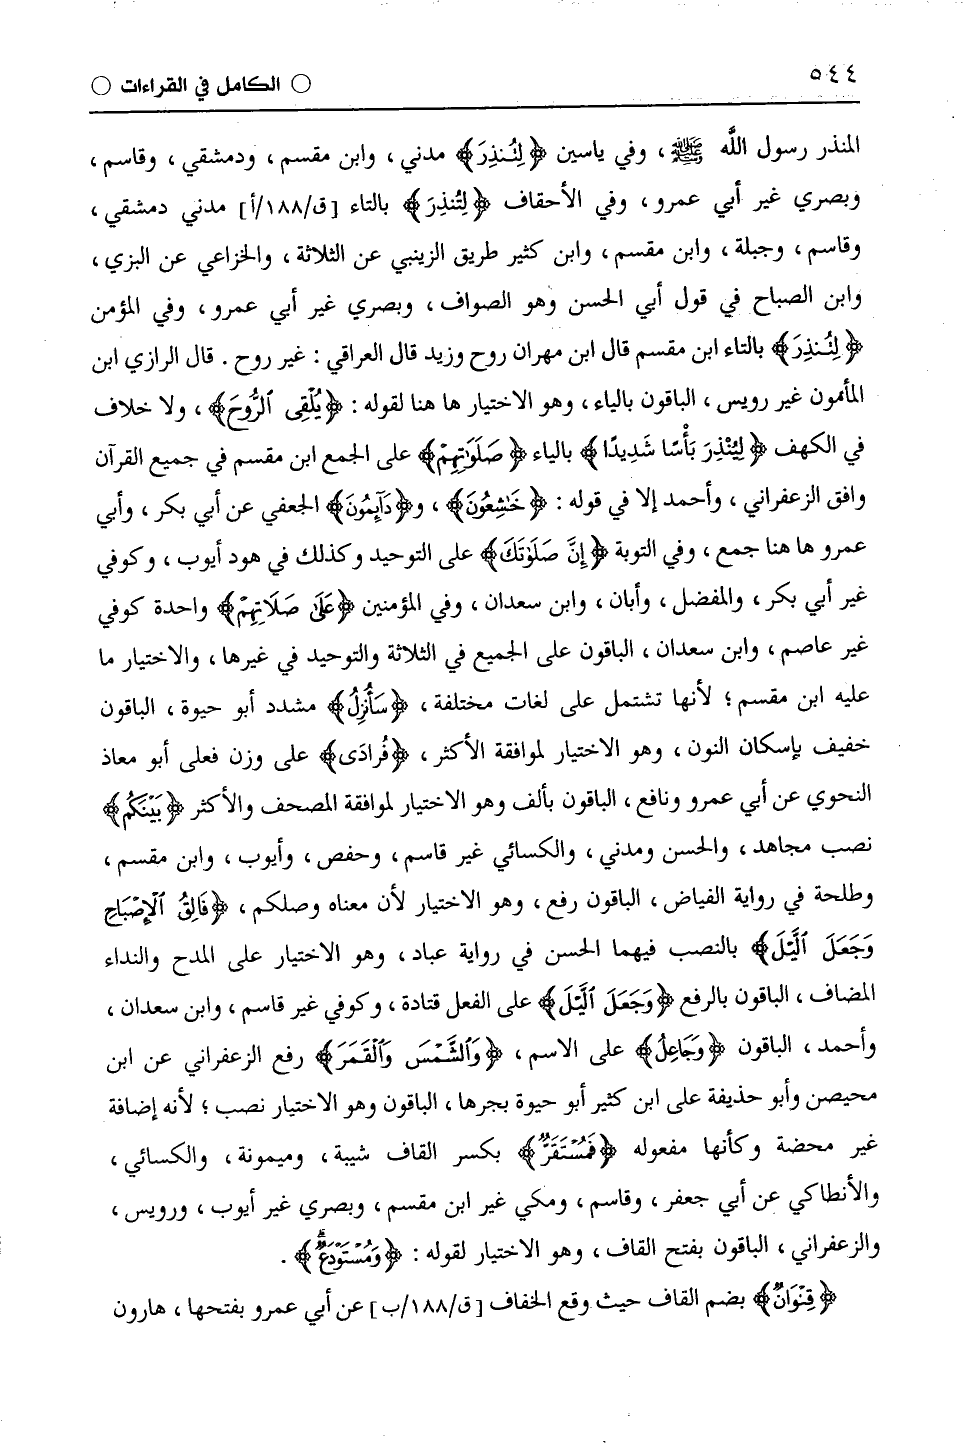 ٥٤٤
○ الكامل في القراءات ○
المنذر رسول اللَّه ﷺ، وفي ياسين ﴿لِتُنذِرَ﴾ مدني، وابن مقسم، ودمشقي، وقاسم،
وبصري غير أبي عمرو، وفي الأحقاف ﴿لِتُنذِرَ﴾ بالتاء [ق/١٨٨/أ] مدني دمشقي،
وقاسم، وجبلة، وابن مقسم، وابن كثير طريق الزينبي عن الثلاثة، والخزاعي عن البزي،
وابن الصباح في قول أبي الحسن وهو الصواف، وبصري غير أبي عمرو، وفي المؤمن
﴿لِتُنذِرَ﴾ بالتاء ابن مقسم قال ابن مهران روح وزيد قال العراقي: غير روح. قال الرازي ابن
المأمون غير رويس، الباقون بالياء، وهو الاختيار ها هنا لقوله: ﴿يُلْقِى ٱلرُّوحَ﴾، ولا خلاف
في الكهف ﴿لِيُنْذِرَ بَأْسًا شَدِيدًا﴾ بالياء ﴿صَلَوَٰتِهِمْ﴾ على الجمع ابن مقسم في جميع القرآن
وافق الزعفراني، وأحمد إلا في قوله: ﴿خَٰشِعُونَ﴾، و﴿دَآئِمُونَ﴾ الجعفي عن أبي بكر، وأبي
عمرو ها هنا جمع، وفي التوبة ﴿إِنَّ صَلَوٰتَكَ﴾ على التوحيد وكذلك في هود أيوب، وكوفي
غير أبي بكر، والمفضل، وأبان، وابن سعدان، وفي المؤمنين ﴿عَلَىٰ صَلَاتِهِمْ﴾ واحدة كوفي
غير عاصم، وابن سعدان، الباقون على الجميع في الثلاثة والتوحيد في غيرها، والاختيار ما
عليه ابن مقسم؛ لأنها تشتمل على لغات مختلفة، ﴿سَأُنَزِلُ﴾ مشدد أبو حيوة، الباقون
خفيف بإسكان النون، وهو الاختيار لموافقة الأكثر، ﴿فُرادَى﴾ على وزن فعلى أبو معاذ
النحوي عن أبي عمرو ونافع، الباقون بألف وهو الاختيار لموافقة المصحف والأكثر ﴿بَيْنَكُمْ﴾
نصب مجاهد، والحسن ومدني، والكسائي غير قاسم، وحفص، وأيوب، وابن مقسم،
وطلحة في رواية الفياض، الباقون رفع، وهو الاختيار لأن معناه وصلكم، ﴿فَالِقُ ٱلْإِصْبَاحِ
وَجَعَلَ ٱلَّيْلَ﴾ بالنصب فيهما الحسن في رواية عباد، وهو الاختيار على المدح والنداء
المضاف، الباقون بالرفع ﴿وَجَعَلَ ٱلَّيْلَ﴾ على الفعل قتادة، وكوفي غير قاسم، وابن سعدان،
وأحمد، الباقون ﴿وَجَاعِلُ﴾ على الاسم، ﴿وَٱلشَّمْسَ وَٱلْقَمَرَ﴾ رفع الزعفراني عن ابن
محيصن وأبو حذيفة على ابن كثير أبو حيوة بجرها، الباقون وهو الاختيار نصب؛ لأنه إضافة
غير محضة وكأنها مفعوله ﴿فَمُسْتَقَرٌّ﴾ بكسر القاف شيبة، وميمونة، والكسائي،
والأنطاكي عن أبي جعفر، وقاسم، ومكي غير ابن مقسم، وبصري غير أيوب، ورويس،
والزعفراني، الباقون بفتح القاف، وهو الاختيار لقوله: ﴿وَمُسْتَوْدَعٌ﴾.
﴿قِنْوَانٌ﴾ بضم القاف حيث وقع الخفاف [ق/١٨٨/ب] عن أبي عمرو بفتحها، هارون